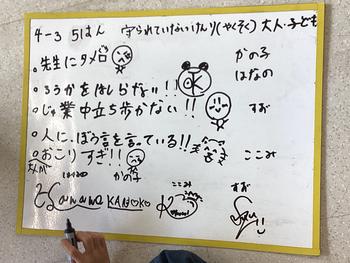 4-3 5はん 守られていないけんり(やくそく) 大人・子ども
。先生にタメ口 かの子
はなの
。ろうかをはしらない!! OK
。じゅ業中立ち歩かない!! すお
。人に、ぼう言を言っている!!
。おこりすぎ!! ここみ
大人が はなの かの子
Hanana KANOKO ここみ すお